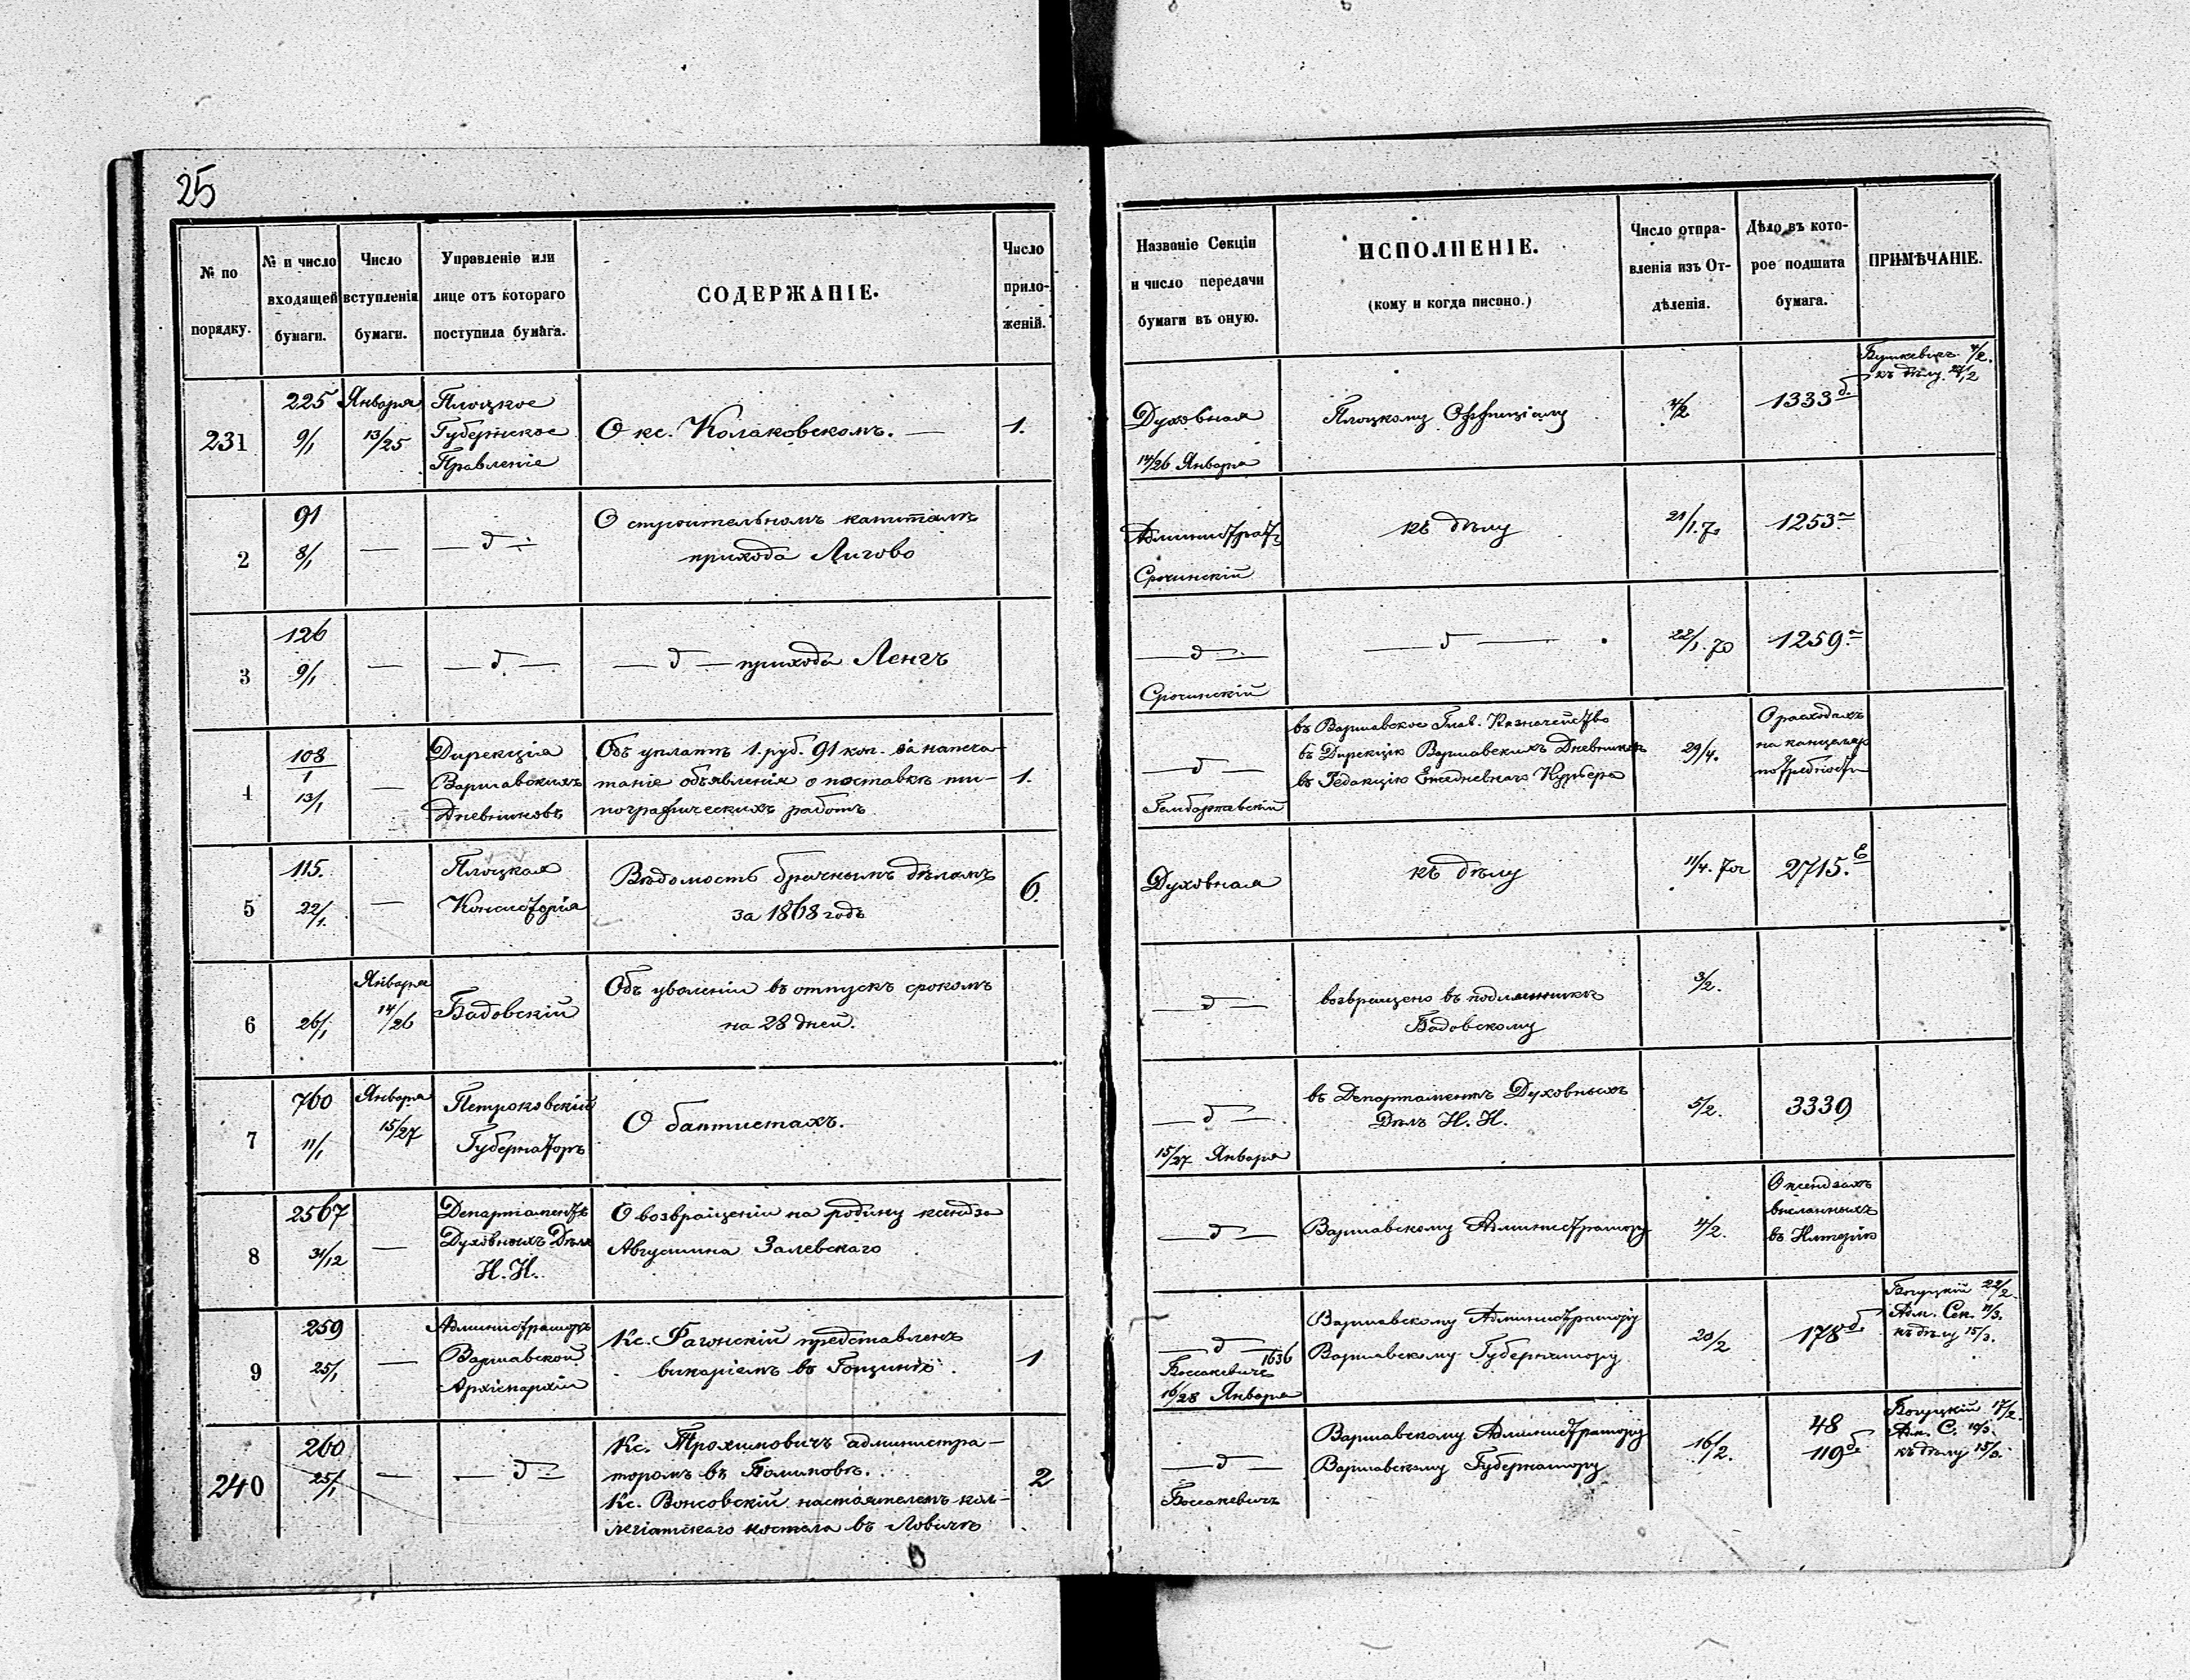 25
№ по
порядку.
№ и число
входящей
бумаги.
Число
вступленія
бумаги.
Управленіе или
лице отъ котораго
поступила бумага.
СОДЕРЖАНІЕ.
Число
прило-
женій.
Названіе Секціи
и число передачи
бумаги въ оную.
ИСПОЛНЕНІЕ.
(кому и когда писано.)
Число отпра-
вленія изъ От-
дѣленія.
Дѣло въ кото-
рое подшита
бумага.
ПРИМѢЧАНІЕ.
231
225
9/1
Января
13/25
Плоцкое
Губернское
Правленіе
О кс. Колаковскомъ. —
1.
Духовная
14/26 Января
Плоцкому Оффиціалу
4/2
1333 б.
къ дѣлу 24/2
2
91
8/1
—
— д —
О строительномъ капиталѣ
прихода Лигово
Срочинскій
къ дѣлу
21/1. 70
1253
3
126
9/1
—
— д —
— д — прихода Ленгъ
— д —
Срочинскій
— д —
22/1. 70
1259
4
108/1
13/1
—
Дирекція
Варшавскихъ
Дневниковъ
Объ уплатѣ 1. руб. 91 коп. за напеча-
таніе объявленія о поставкѣ ти-
пографическихъ работъ
1.
— д —
Гембаржевскій
въ Варшавское Глав. Казначейство
въ Дирекцію Варшавскихъ Дневниковъ
въ Редакцію Ежедневнаго Курьера
29/4.
О расходахъ
на канцеляр
потребности
5
115.
22/1.
—
Плоцкая
Консисторія
Вѣдомость брачнымъ дѣламъ
за 1868 годъ
6.
Духовная
къ дѣлу
11/4. 70
2715.
6
26/1
Января
14/26
Бадовскій
Объ уволеніи въ отпускъ срокомъ
на 28 дней.
— д —
возвращено въ подлинникѣ
Бадовскому
3/2.
7
760
11/1
Января
15/27
Петроковскій
Губернаторъ
О баптистахъ.
— д —
15/27 Января
въ Департаментъ Духовныхъ
Дѣлъ И. И.
5/2.
3339
8
2567
31/12
—
Департаментъ
Духовныхъ Дѣлъ
И. И.
О возвращеніи на родину ксендза
Августина Залевскаго
— д —
Варшавскому Администратору
4/2.
О ксендзахъ
высланныхъ
въ Имперію
9
259
25/1
—
Администраторъ
Варшавской
Архіепархіи
Кс. Рагонскій представленъ
викаріемъ въ
1
— д —
1636
16/28 Января
Варшавскому Администратору
Варшавскому Губернатору
20/2
178 б.
Богуцкій 22/2.
Адм. Сек. 11/3.
къ дѣлу 15/3.
240
260
25/1
—
— д —
Кс. Трохимовичъ администра-
торомъ въ
Кс. Вонсовскій настоятелемъ кол-
легіатскаго костела въ Ловичѣ
2
— д —
Варшавскому Администратору
Варшавскому Губернатору
16/2.
48
119 б.
Богуцкій 17/2.
Адм. С. 10/3.
къ дѣлу 15/3.